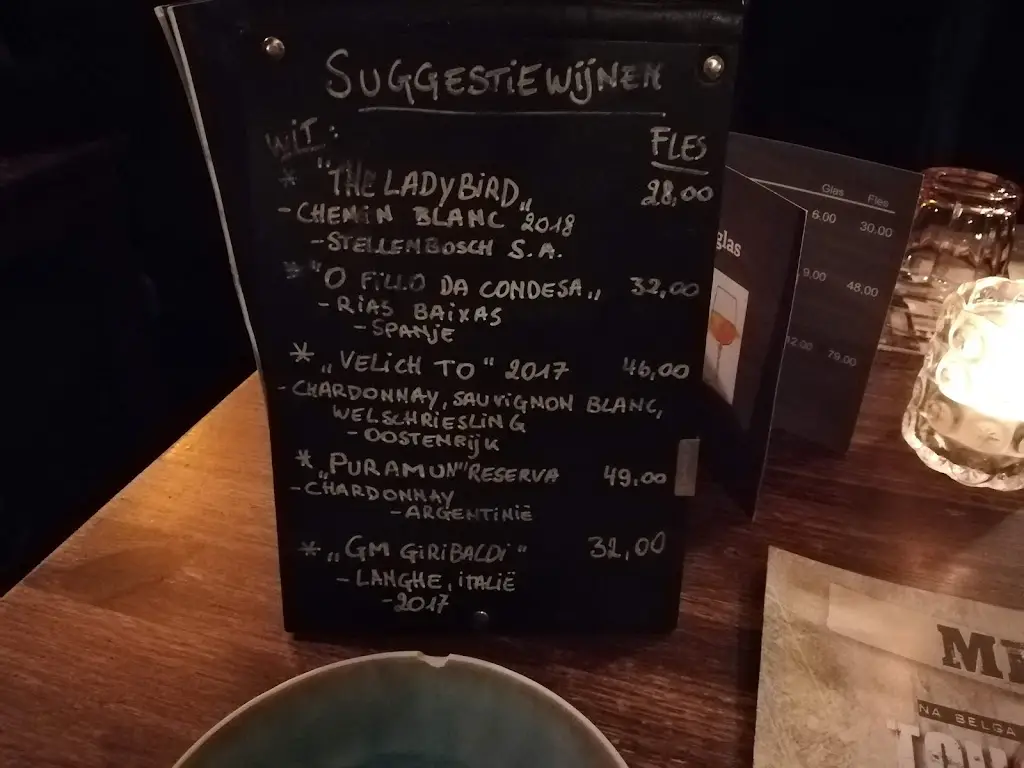 SUGGESTIEWIJNEN
WIT:
FLES
* "THE LADYBIRD„ 28,00
- CHENIN BLANC 2018
- STELLENBOSCH S.A.
* "O FILLO DA CONDESA„ 32,00
- RIAS BAIXAS
- SPANJE
* „VELICH TO" 2017 46,00
- CHARDONNAY, SAUVIGNON BLANC,
WELSCHRIESLING
- OOSTENRIJK
* „PURAMUN" RESERVA 49,00
- CHARDONNAY
- ARGENTINIË
* „GM GIRIBALDI" 32,00
- LANGHE, ITALIË
- 2017
glas
Glas Fles
6.00 30.00
9.00 48.00
12.00 79.00
ME
NA BELGA